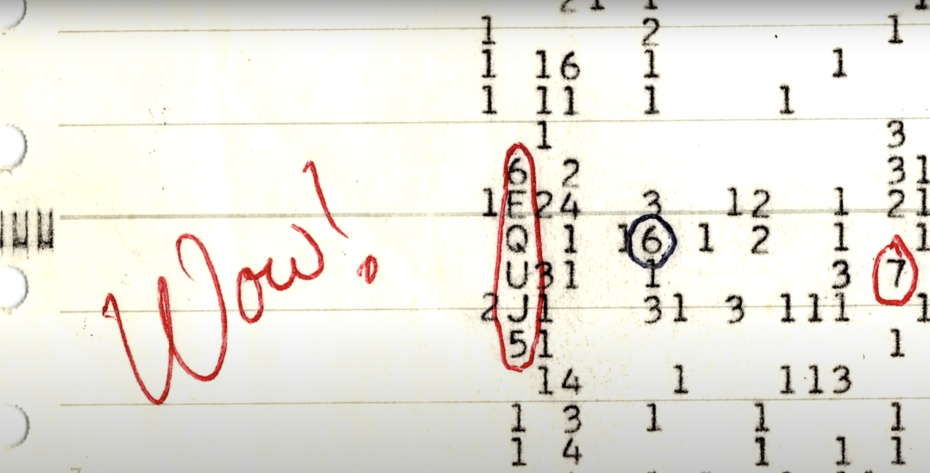 1 2 1
1 16 1 1
1 11 1 1
1 3
6 2 31
1 E 24 3 12 1 21
Q 1 16 1 2 1 1
U 31 1 3 7
2 J 1 31 3 111 1
5 1 1
14 1 113
1 3 1 1 1
1 4 1 1 1
Wow!